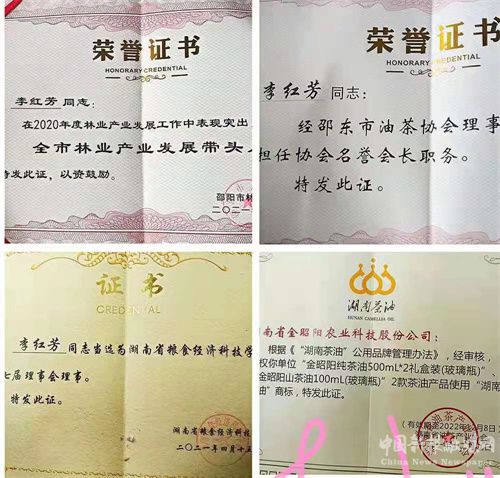 荣誉证书
HONORARY CREDENTIAL
李红芳 同志:
在2020年度林业产业发展工作中表现突出
全市林业产业发展带头
特发此证,以资鼓励。
邵阳市林
二〇二一
荣誉证书
HONORARY CREDENTIAL
李红芳 同志:
经邵东市油茶协会理事
担任协会名誉会长职务。
特发此证。
证书
CREDENTIAL
李红芳 同志当选为湖南省粮食经济科技学
七届理事会理事。
特发此证。
湖南省粮食经济科技
二〇二一年四月十五
湖南茶油
HUNAN CAMELLIA OIL
湖南省金昭阳农业科技股份公司:
根据《“湖南茶油”公用品牌管理办法》,经审核,
权你单位“金昭阳纯茶油500mL*2礼盒装(玻璃瓶)”
金昭阳山茶油100mL(玻璃瓶)”2款茶油产品使用“湖南
油”商标,特发此证。
(有效期至2022年12月8日)
China News